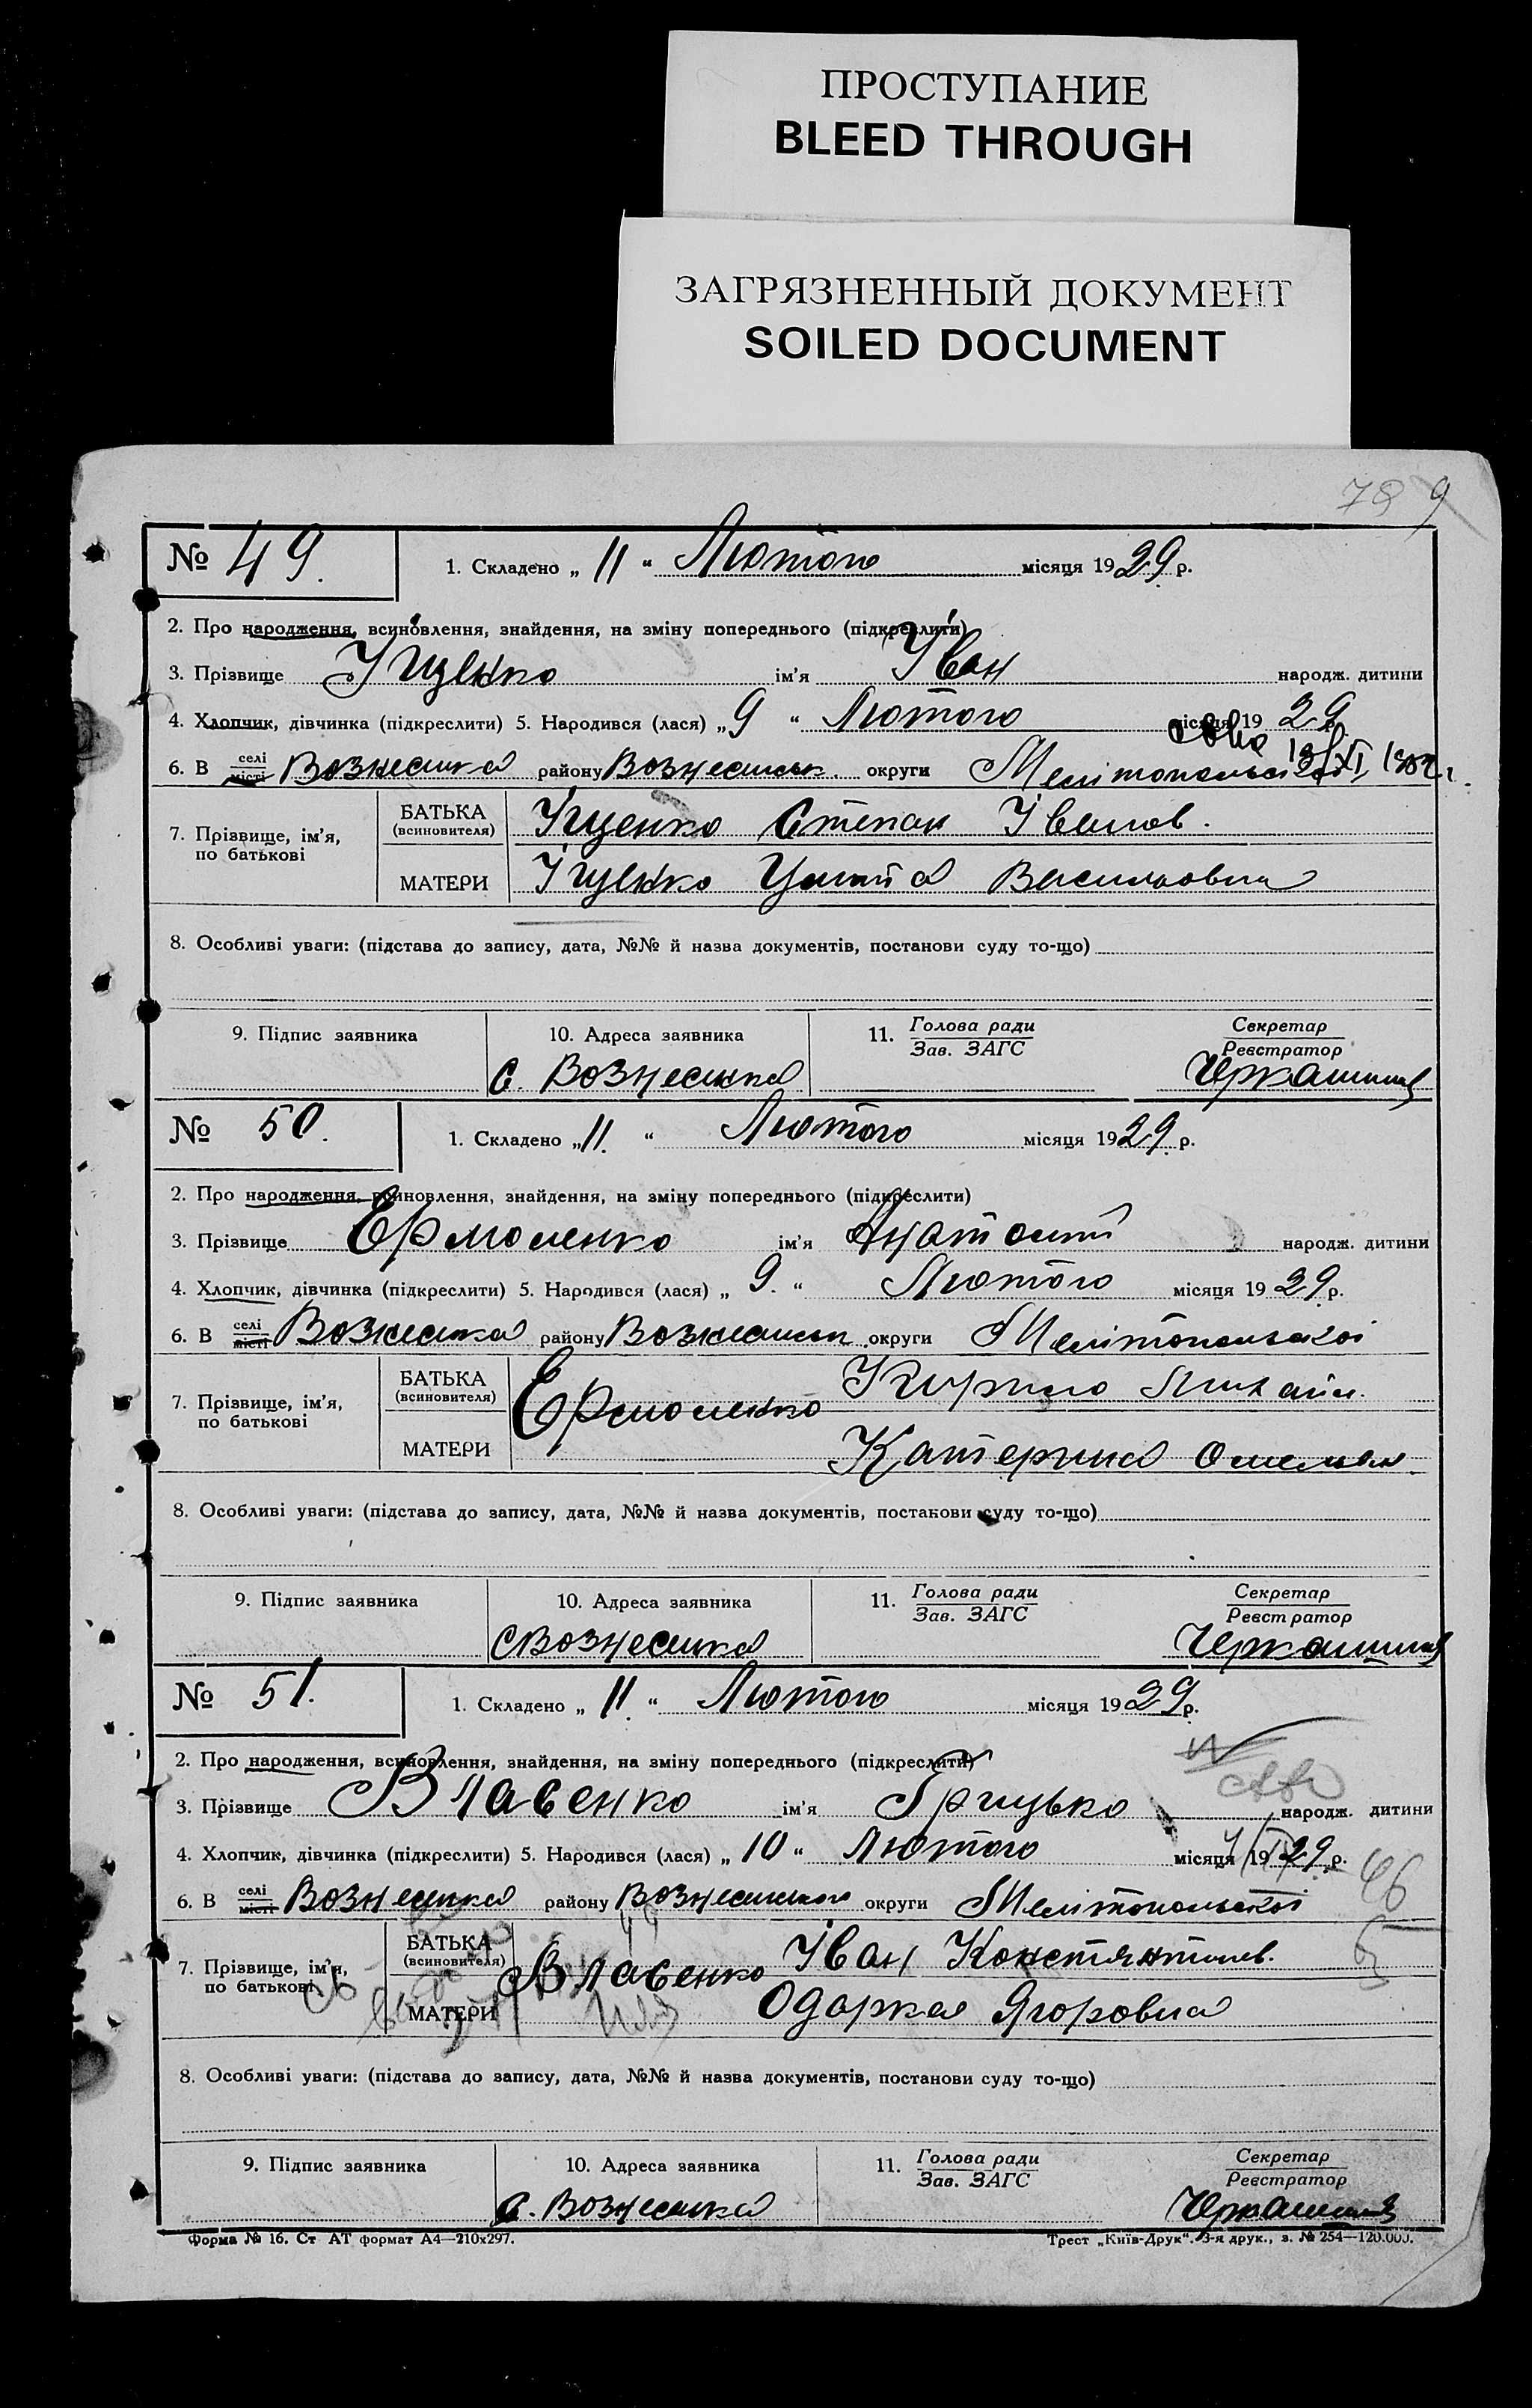 ПРОСТУПАНИЕ
BLEED THROUGH
ЗАГРЯЗНЕННЫЙ ДОКУМЕНТ
SOILED DOCUMENT
78 9
№ 49. 1. Складено „ 11 “ Лютого місяця 1929 р.
2. Про народження, всиновлення, знайдення, на зміну попереднього (підкреслити)
3. Прізвище Іщенко ім'я Іван народж. дитини
4. Хлопчик, дівчинка (підкреслити) 5. Народився (лася) „ 9 “ Лютого місяця 19 29 р.
6. В селі місті Вознесинка району Вознесинськ. округи Мелітопольської
7. Прізвище, ім'я, по батькові
БАТЬКА (всиновителя) Іщенко Степан Іванов.
МАТЕРИ Іщенко Василковна
8. Особливі уваги: (підстава до запису, дата, №№ й назва документів, постанови суду то-що)
9. Підпис заявника 10. Адреса заявника 11. Голова ради Зав. ЗАГС Секретар Реєстратор
с. Вознесинка
№ 50. 1. Складено „ 11. “ Лютого місяця 1929 р.
2. Про народження, всиновлення, знайдення, на зміну попереднього (підкреслити)
3. Прізвище Ермоленко ім'я Анатолій народж. дитини
4. Хлопчик, дівчинка (підкреслити) 5. Народився (лася) „ 9. “ Лютого місяця 19 29 р.
6. В селі місті Вознесинка району Вознесинськ. округи Мелітопольської
7. Прізвище, ім'я, по батькові
БАТЬКА (всиновителя) Ермоленко Кирило Михайл.
МАТЕРИ Катерина Омельян.
8. Особливі уваги: (підстава до запису, дата, №№ й назва документів, постанови суду то-що)
9. Підпис заявника 10. Адреса заявника 11. Голова ради Зав. ЗАГС Секретар Реєстратор
с Вознесинка
№ 51. 1. Складено „ 11. “ Лютого місяця 1929 р.
2. Про народження, всиновлення, знайдення, на зміну попереднього (підкреслити)
3. Прізвище Власенко ім'я Грицько народж. дитини
4. Хлопчик, дівчинка (підкреслити) 5. Народився (лася) „ 10 “ Лютого місяця 1929 р.
6. В селі місті Вознесинка району Вознесинського округи Мелітопольської
7. Прізвище, ім'я, по батькові
БАТЬКА (всиновителя) Власенко Іван Констянтинов.
МАТЕРИ Одарка Ягоровна
8. Особливі уваги: (підстава до запису, дата, №№ й назва документів, постанови суду то-що)
9. Підпис заявника 10. Адреса заявника 11. Голова ради Зав. ЗАГС Секретар Реєстратор
с. Вознесинка
Форма № 16. Ст АТ формат А4—210х297. Трест „Київ-Друк“. 3-я друк., з. № 254—120.000.